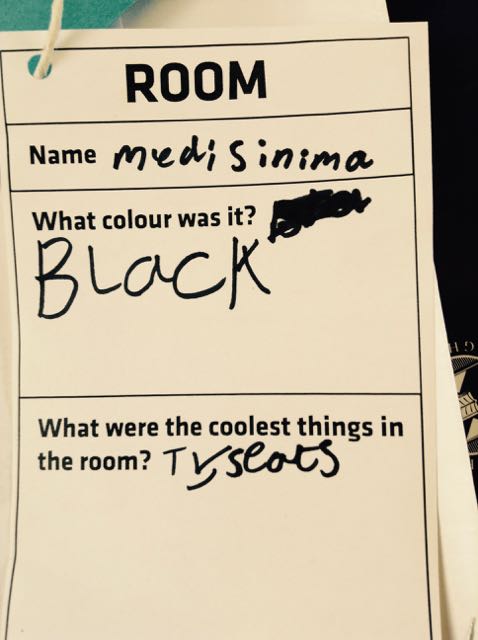 ROOM
Name medi Sinima
What colour was it?
BLacK
What were the coolest things in
the room? Tv, seats